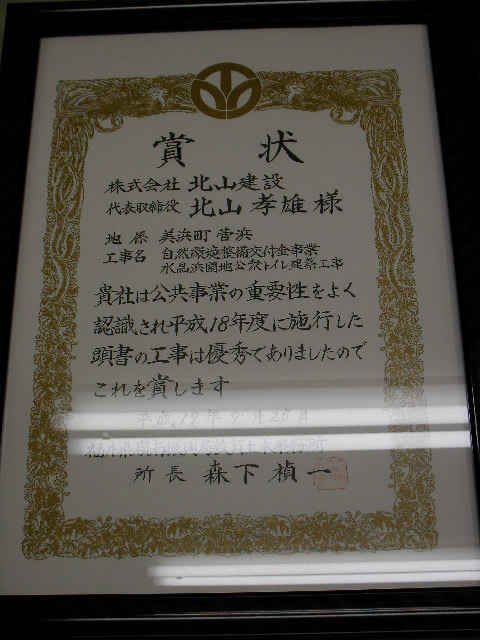 賞状
株式会社 北山建設
代表取締役 北山孝雄様
地原 美浜町菅浜
工事名 自然環境整備交付金事業
水晶浜園地公衆トイレ建築工事
貴社は公共事業の重要性をよく
認識され平成18年度に施行した
頭書の工事は優秀でありましたので
これを賞します
平成19年9月26日
所長 森下禎一